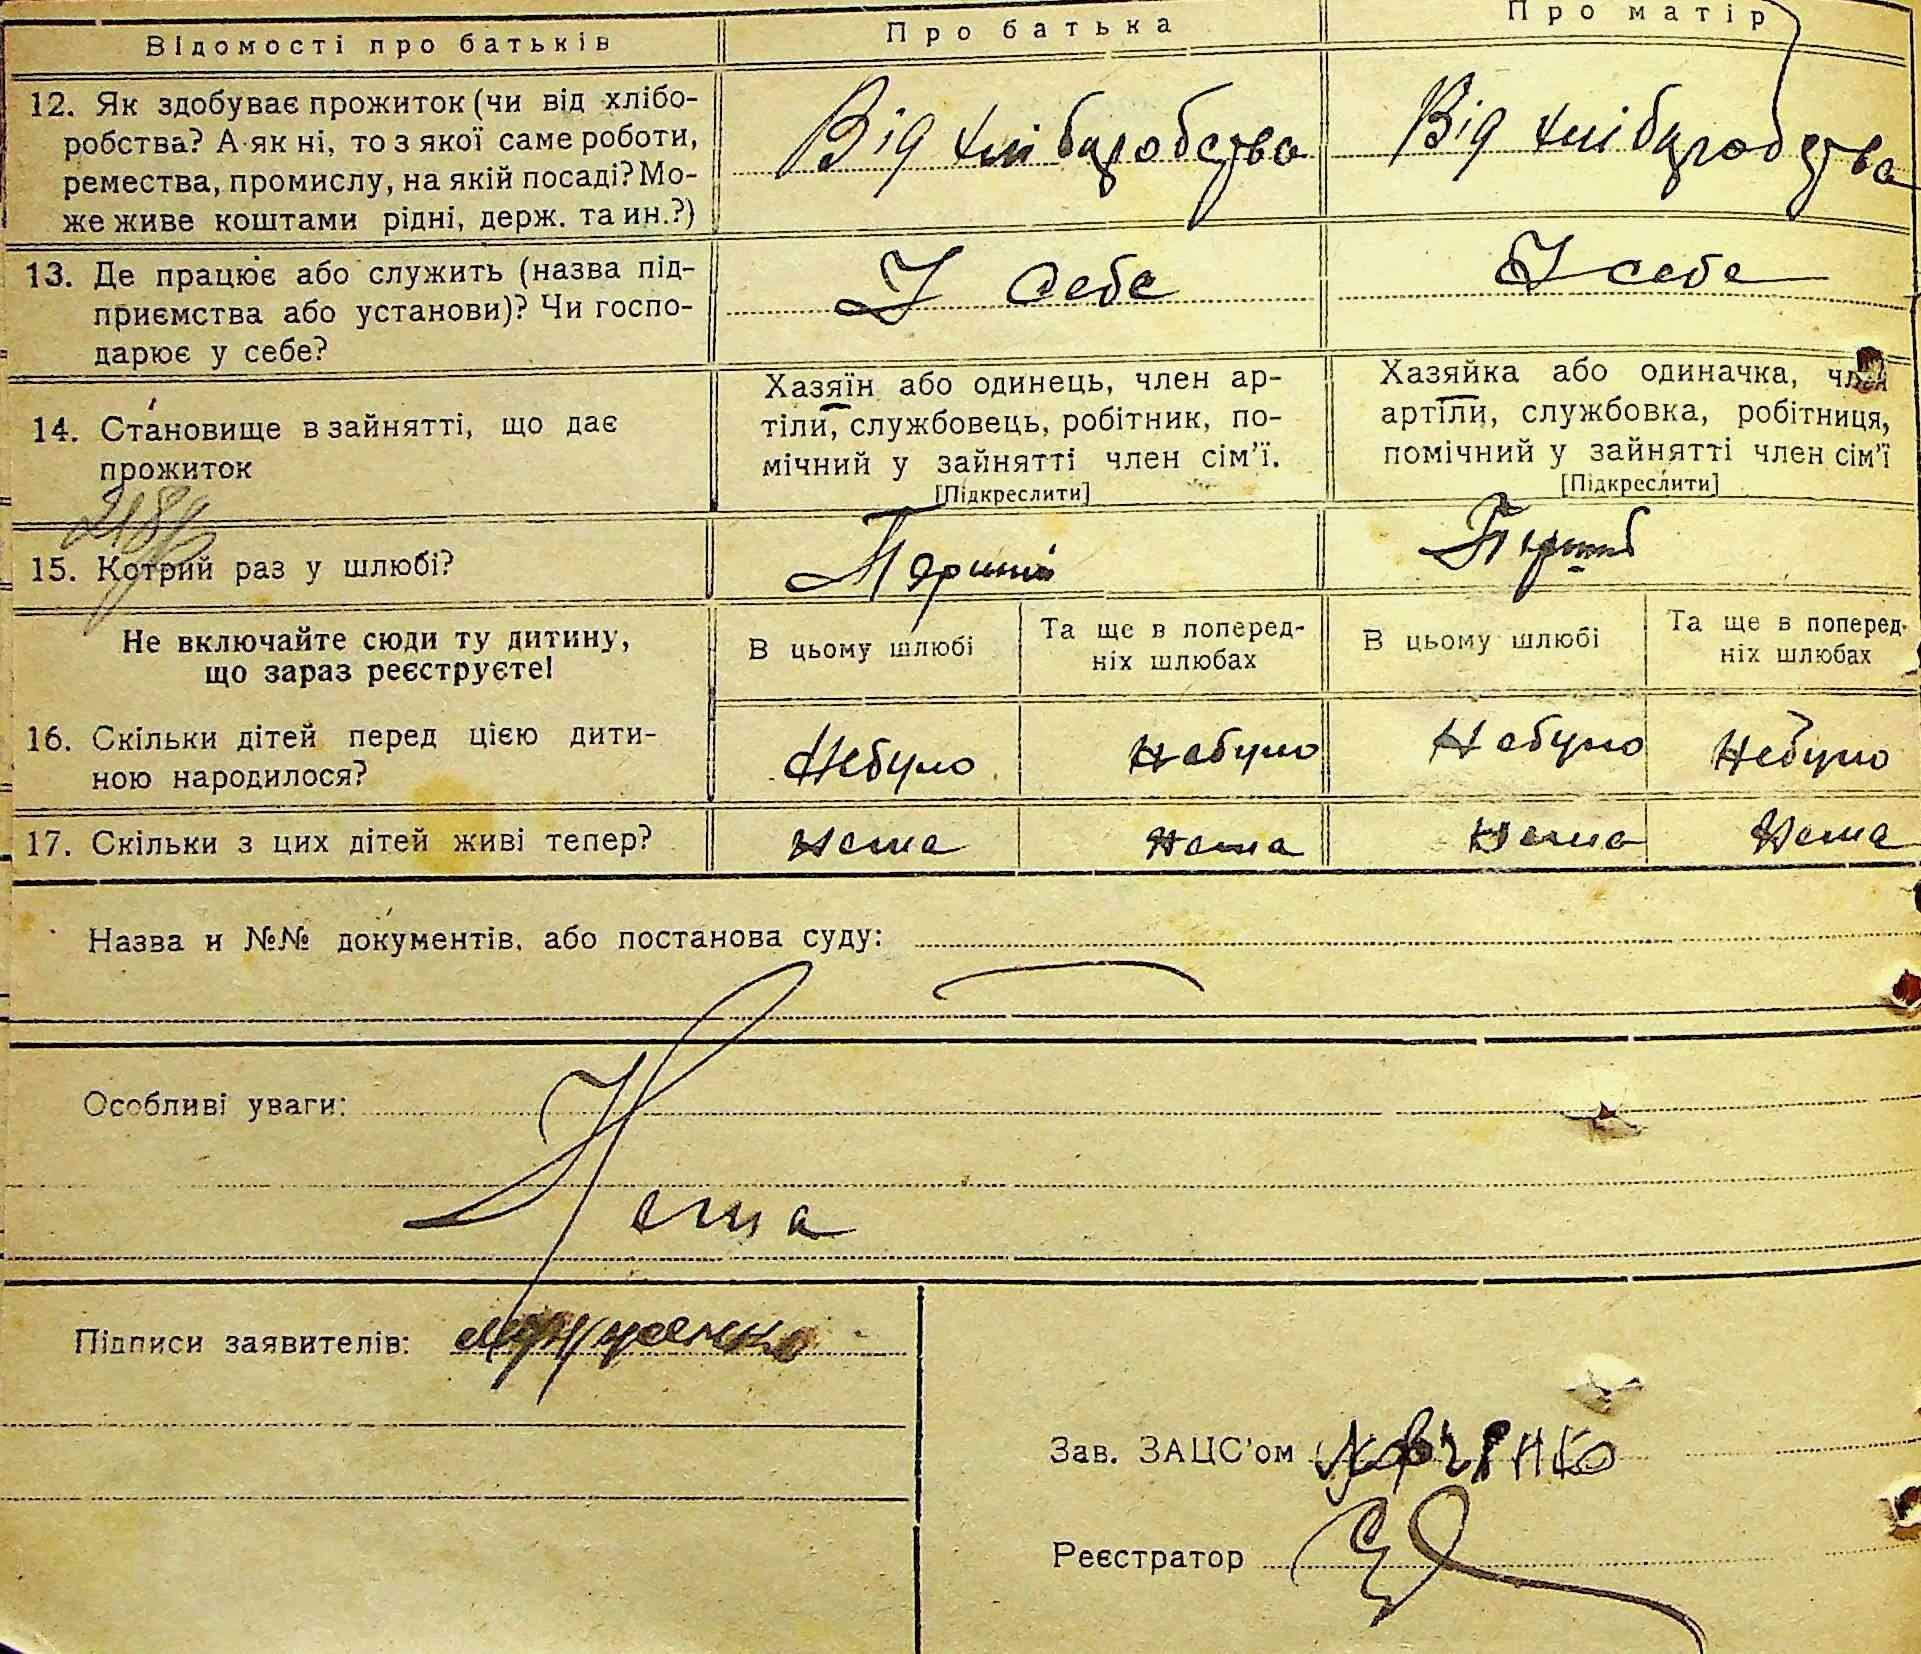 Відомості про батьків
Про батька
Про матір
12. Як здобуває прожиток (чи від хлібо-
робства? А як ні, то з якої саме роботи,
ремества, промислу, на якій посаді? Мо-
же живе коштами рідні, держ. та ин.?)
Від хлібаробства
Від хлібаробства
13. Де працює або служить (назва під-
приємства або установи)? Чи госпо-
дарює у себе?
У себе
У себе
14. Становище в зайнятті, що дає
прожиток
Хазяїн або одинець, член ар-
тіли, службовець, робітник, по-
мічний у зайнятті член сім'ї.
[Підкреслити]
Хазяйка або одиначка, член
артіли, службовка, робітниця,
помічний у зайнятті член сім'ї
[Підкреслити]
15. Котрий раз у шлюбі?
Перший
Перший
Не включайте сюди ту дитину,
що зараз реєструєте!
В цьому шлюбі
Та ще в поперед-
ніх шлюбах
В цьому шлюбі
Та ще в поперед-
ніх шлюбах
16. Скільки дітей перед цією дити-
ною народилося?
Небуло
Небуло
Небуло
Небуло
17. Скільки з цих дітей живі тепер?
Нема
Нема
Нема
Нема
Назва и №№ документів, або постанова суду:
Особливі уваги:
Нема
Підписи заявителів:
Зав. ЗАЦС'ом
Реєстратор